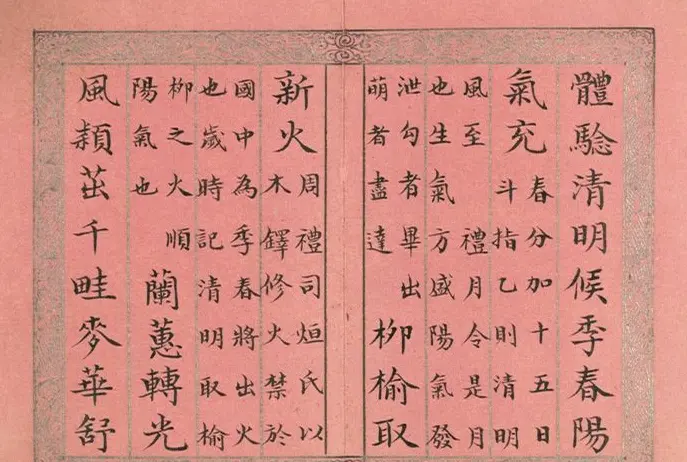 體驗清明候季春陽
氣充春分加十五日
斗指乙則清明
風至 禮月令是月
也生氣方盛陽氣發
泄勾者畢出
萌者盡達柳榆取
新火周禮司烜氏以
木鐸修火禁於
國中為季春將出火
也歲時記清明取榆
柳之火順
陽氣也蘭蕙轉光
風頴茁千畦麥華舒